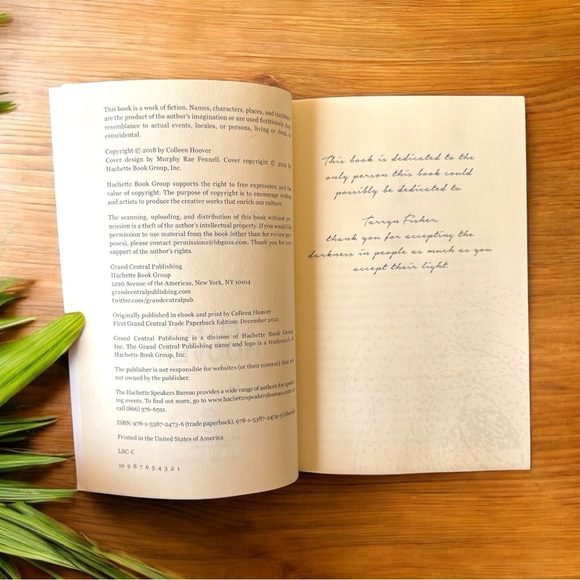 This book is a work of fiction. Names, characters, places, and incidents
are the product of the author's imagination or are used fictitiously. Any
resemblance to actual events, locales, or persons, living or dead, is
coincidental.
Copyright © 2018 by Colleen Hoover
Cover design by Murphy Rae Fennell. Cover copyright © by
Hachette Book Group, Inc.
Hachette Book Group supports the right to free expression and the
value of copyright. The purpose of copyright is to encourage writers
and artists to produce the creative works that enrich our culture.
The scanning, uploading, and distribution of this book without per-
mission is a theft of the author's intellectual property. If you would like
permission to use material from the book (other than for review pur-
poses), please contact permissions@hbgusa.com. Thank you for your
support of the author's rights.
Grand Central Publishing
Hachette Book Group
1290 Avenue of the Americas, New York, NY 10104
grandcentralpublishing.com
twitter.com/grandcentralpub
Originally published in ebook and print by Colleen Hoover
First Grand Central Trade Paperback Edition: December 2021
Grand Central Publishing is a division of Hachette Book Group,
Inc. The Grand Central Publishing name and logo is a trademark of
Hachette Book Group, Inc.
The publisher is not responsible for websites (or their content) that are
not owned by the publisher.
The Hachette Speakers Bureau provides a wide range of authors for speak-
ing events. To find out more, go to www.hachettespeakersbureau.com or
call (866) 376-6591.
ISBN: 978-1-5387-2473-6 (trade paperback), 978-1-5387-2474-3 (ebook)
Printed in the United States of America
LSC-C
10 9 8 7 6 5 4 3 2 1
This book is dedicated to the
only person this book could
possibly be dedicated to.
Tarryn Fisher,
thank you for accepting the
darkness in people as much as you
accept their light.